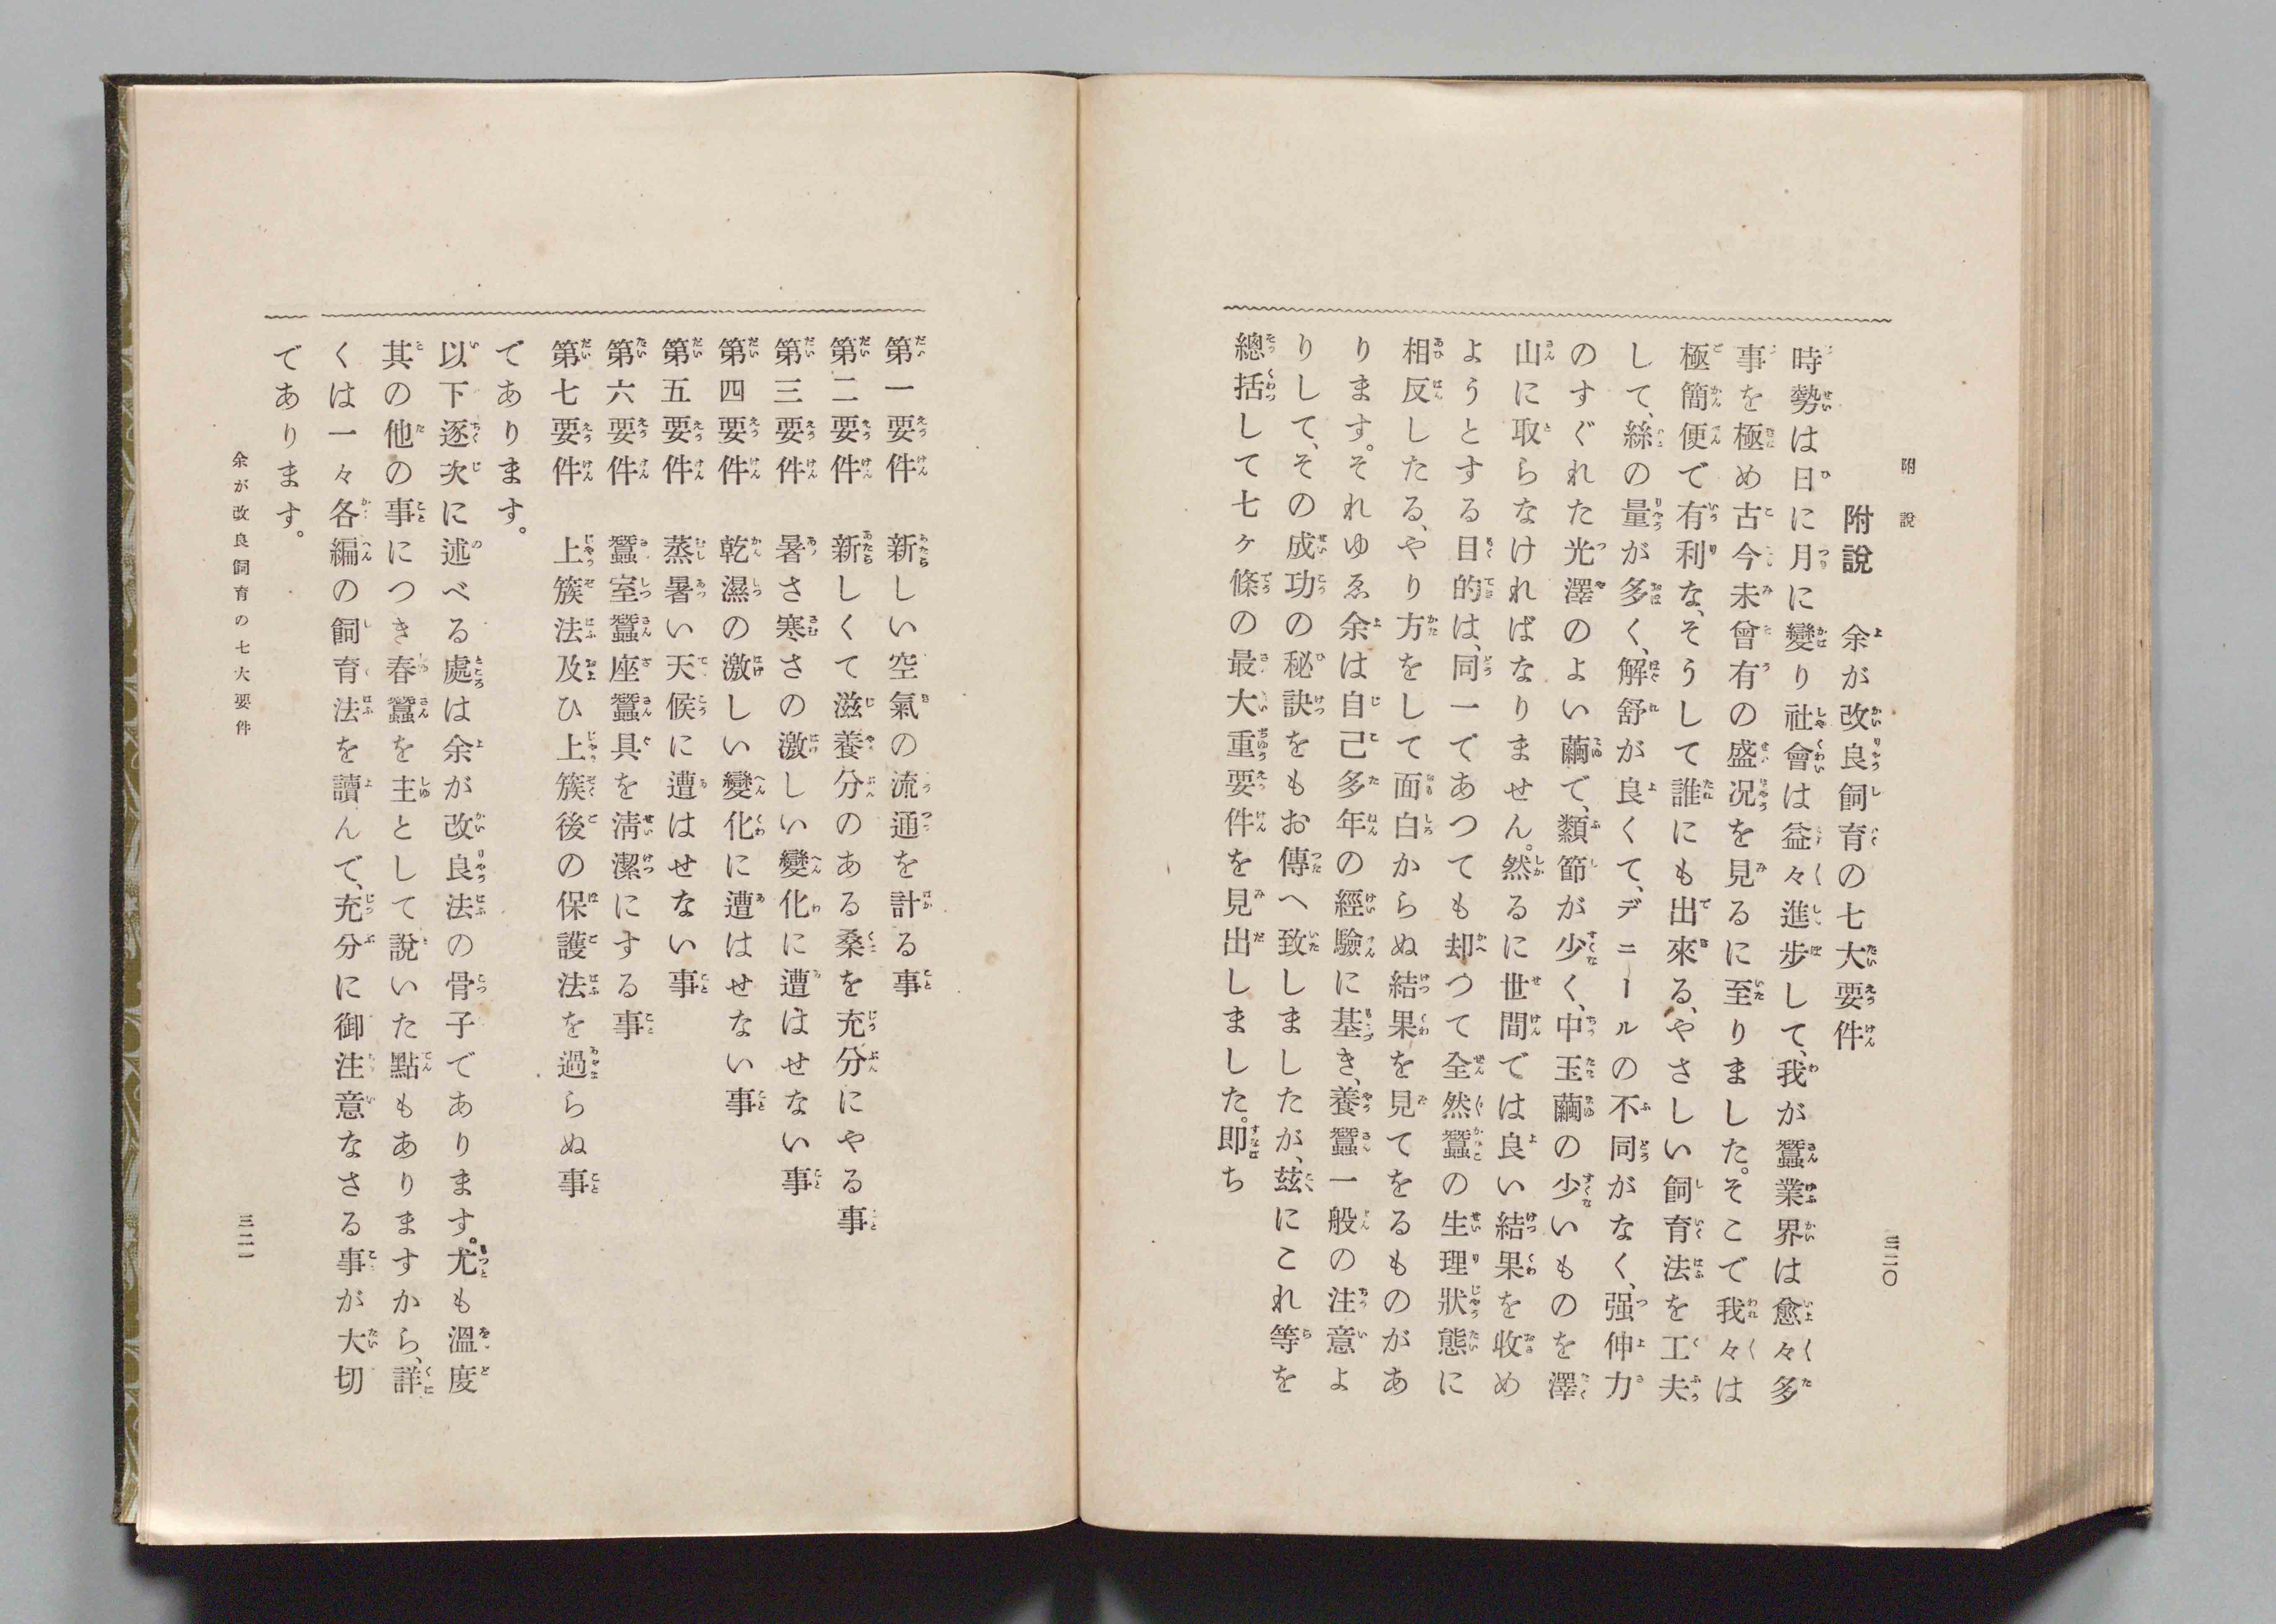 附說
三二〇
附說　余が改良飼育の七大要件
時勢は日に月に變り社會は益々進步して、我が蠶業界は愈々多
事を極め古今未曾有の盛况を見るに至りました。そこで我々は
極簡便で有利な、そうして誰にも出來る、やさしい飼育法を工夫
して、絲の量が多く、解舒が良くて、デニールの不同がなく、强伸力
のすぐれた光澤のよい繭で、纇節が少く、中玉繭の少いものを澤
山に取らなければなりません。然るに世間では良い結果を收め
ようとする目的は、同一であつても却つて全然蠶の生理狀態に
相反したる、やり方をして面白からぬ結果を見てをるものがあ
ります。それゆゑ余は自己多年の經驗に基き、養蠶一般の注意よ
りして、その成功の秘訣をもお傳へ致しましたが、玆にこれ等を
總括して七ヶ條の最大重要件を見出しました。即ち
第一要件　新しい空氣の流通を計る事
第二要件　新しくて滋養分のある桑を充分にやる事
第三要件　暑さ寒さの激しい變化に遭はせない事
第四要件　乾濕の激しい變化に遭はせない事
第五要件　蒸暑い天候に遭はせない事
第六要件　蠶室蠶座蠶具を淸潔にする事
第七要件　上簇法及ひ上簇後の保護法を過らぬ事
であります。
以下逐次に述べる處は余が改良法の骨子であります。尤も溫度
其の他の事につき春蠶を主として說いた點もありますから、詳
くは一々各編の飼育法を讀んで、充分に御注意なさる事が大切
であります。
余が改良飼育の七大要件
三二一